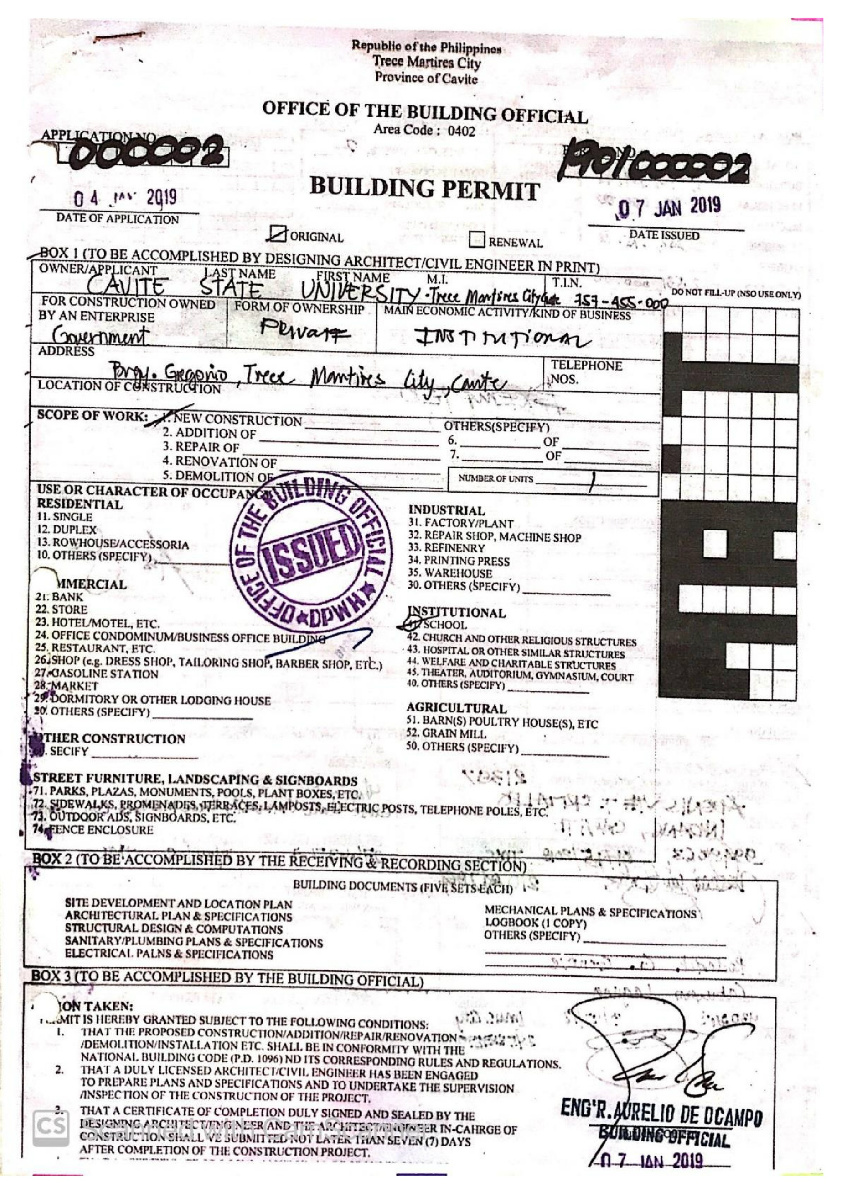 Republic of the Philippines
Trece Martires City
Province of Cavite
OFFICE OF THE BUILDING OFFICIAL
Area Code : 0402
APPLICATION NO.
000002
1901000002
BUILDING PERMIT
04 JAN 2019
DATE OF APPLICATION
07 JAN 2019
DATE ISSUED
ORIGINAL
RENEWAL
BOX 1 (TO BE ACCOMPLISHED BY DESIGNING ARCHITECT/CIVIL ENGINEER IN PRINT)
OWNER/APPLICANT LAST NAME FIRST NAME M.I. T.I.N.
CAVITE STATE UNIVERSITY - Trece Martires City 757-455-000
DO NOT FILL-UP (NSO USE ONLY)
FOR CONSTRUCTION OWNED BY AN ENTERPRISE
Government
FORM OF OWNERSHIP
Private
MAIN ECONOMIC ACTIVITY/KIND OF BUSINESS
INSTITUTIONAL
ADDRESS
TELEPHONE NOS.
Brgy. Gregorio, Trece Martires City, Cavite
LOCATION OF CONSTRUCTION
SCOPE OF WORK: 1. NEW CONSTRUCTION
2. ADDITION OF
3. REPAIR OF
4. RENOVATION OF
5. DEMOLITION OF
OTHERS(SPECIFY)
6. OF
7. OF
NUMBER OF UNITS 1
USE OR CHARACTER OF OCCUPANC
RESIDENTIAL
11. SINGLE
12. DUPLEX
13. ROWHOUSE/ACCESSORIA
10. OTHERS (SPECIFY)
OFFICE OF THE BUILDING OFFICIAL
ISSUED
DPWH
MMERCIAL
21. BANK
22. STORE
23. HOTEL/MOTEL, ETC.
24. OFFICE CONDOMINUM/BUSINESS OFFICE BUILDING
25. RESTAURANT, ETC.
26. SHOP (e.g. DRESS SHOP, TAILORING SHOP, BARBER SHOP, ETC.)
27. GASOLINE STATION
28. MARKET
29. DORMITORY OR OTHER LODGING HOUSE
20. OTHERS (SPECIFY)
THER CONSTRUCTION
SECIFY
INDUSTRIAL
31. FACTORY/PLANT
32. REPAIR SHOP, MACHINE SHOP
33. REFINENRY
34. PRINTING PRESS
35. WAREHOUSE
30. OTHERS (SPECIFY)
INSTITUTIONAL
41. SCHOOL
42. CHURCH AND OTHER RELIGIOUS STRUCTURES
43. HOSPITAL OR OTHER SIMILAR STRUCTURES
44. WELFARE AND CHARITABLE STRUCTURES
45. THEATER, AUDITORIUM, GYMNASIUM, COURT
40. OTHERS (SPECIFY)
AGRICULTURAL
51. BARN(S) POULTRY HOUSE(S), ETC
52. GRAIN MILL
50. OTHERS (SPECIFY)
STREET FURNITURE, LANDSCAPING & SIGNBOARDS
71. PARKS, PLAZAS, MONUMENTS, POOLS, PLANT BOXES, ETC.
72. SIDEWALKS, PROMENADES, TERRACES, LAMPOSTS, ELECTRIC POSTS, TELEPHONE POLES, ETC.
73. OUTDOOR ADS, SIGNBOARDS, ETC.
74. FENCE ENCLOSURE
BOX 2 (TO BE ACCOMPLISHED BY THE RECEIVING & RECORDING SECTION)
BUILDING DOCUMENTS (FIVE SETS EACH)
SITE DEVELOPMENT AND LOCATION PLAN
ARCHITECTURAL PLAN & SPECIFICATIONS
STRUCTURAL DESIGN & COMPUTATIONS
SANITARY/PLUMBING PLANS & SPECIFICATIONS
ELECTRICAL PALNS & SPECIFICATIONS
MECHANICAL PLANS & SPECIFICATIONS
LOGBOOK (1 COPY)
OTHERS (SPECIFY)
BOX 3 (TO BE ACCOMPLISHED BY THE BUILDING OFFICIAL)
ION TAKEN:
MIT IS HEREBY GRANTED SUBJECT TO THE FOLLOWING CONDITIONS:
1. THAT THE PROPOSED CONSTRUCTION/ADDITION/REPAIR/RENOVATION
/DEMOLITION/INSTALLATION ETC. SHALL BE IN CONFORMITY WITH THE
NATIONAL BUILDING CODE (P.D. 1096) ND ITS CORRESPONDING RULES AND REGULATIONS.
2. THAT A DULY LICENSED ARCHITECT/CIVIL ENGINEER HAS BEEN ENGAGED
TO PREPARE PLANS AND SPECIFICATIONS AND TO UNDERTAKE THE SUPERVISION
/INSPECTION OF THE CONSTRUCTION OF THE PROJECT.
3. THAT A CERTIFICATE OF COMPLETION DULY SIGNED AND SEALED BY THE
DESIGNING ARCHITECT/ENGINEER AND THE ARCHITECT/ENGINEER IN-CAHRGE OF
CONSTRUCTION SHALL VE SUBMITTED NOT LATER THAN SEVEN (7) DAYS
AFTER COMPLETION OF THE CONSTRUCTION PROJECT.
ENG'R. AURELIO DE OCAMPO
BUILDING OFFICIAL
07 JAN 2019
CS